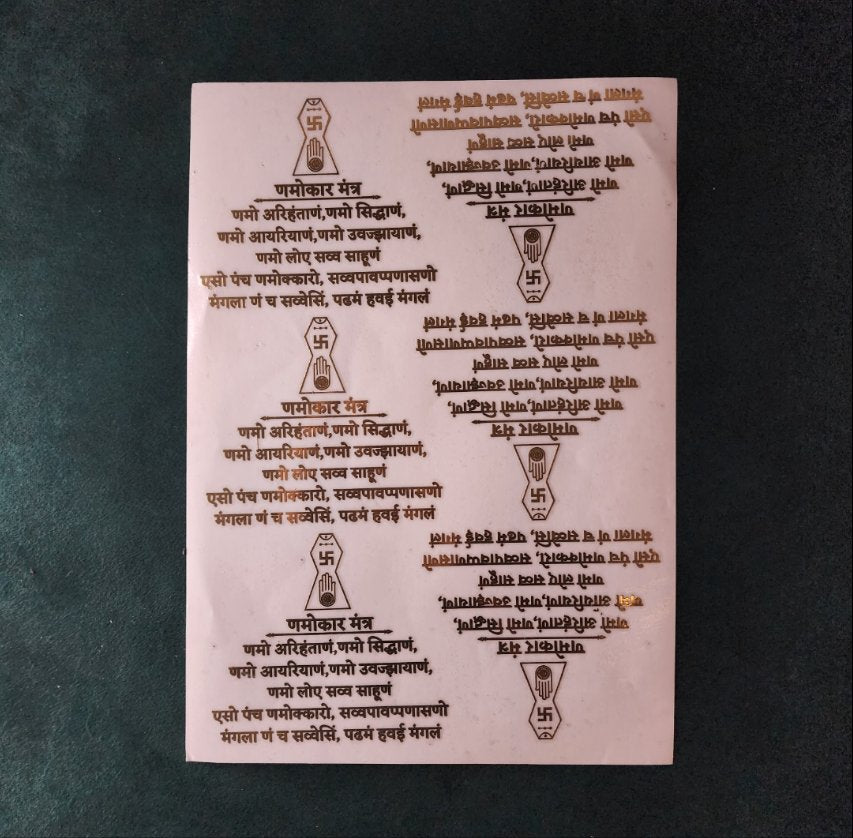 णमोकार मंत्र
णमो अरिहंताणं,णमो सिद्धाणं,
णमो आयरियाणं,णमो उवज्झायाणं,
णमो लोए सव्व साहूणं
एसो पंच णमोक्कारो, सव्वपावप्पणासणो
मंगला णं च सव्वेसिं, पढमं हवई मंगलं
णमोकार मंत्र
णमो अरिहंताणं,णमो सिद्धाणं,
णमो आयरियाणं,णमो उवज्झायाणं,
णमो लोए सव्व साहूणं
एसो पंच णमोक्कारो, सव्वपावप्पणासणो
मंगला णं च सव्वेसिं, पढमं हवई मंगलं
णमोकार मंत्र
णमो अरिहंताणं,णमो सिद्धाणं,
णमो आयरियाणं,णमो उवज्झायाणं,
णमो लोए सव्व साहूणं
एसो पंच णमोक्कारो, सव्वपावप्पणासणो
मंगला णं च सव्वेसिं, पढमं हवई मंगलं
णमोकार मंत्र
णमो अरिहंताणं,णमो सिद्धाणं,
णमो आयरियाणं,णमो उवज्झायाणं,
णमो लोए सव्व साहूणं
एसो पंच णमोक्कारो, सव्वपावप्पणासणो
मंगला णं च सव्वेसिं, पढमं हवई मंगलं
णमोकार मंत्र
णमो अरिहंताणं,णमो सिद्धाणं,
णमो आयरियाणं,णमो उवज्झायाणं,
णमो लोए सव्व साहूणं
एसो पंच णमोक्कारो, सव्वपावप्पणासणो
मंगला णं च सव्वेसिं, पढमं हवई मंगलं
णमोकार मंत्र
णमो अरिहंताणं,णमो सिद्धाणं,
णमो आयरियाणं,णमो उवज्झायाणं,
णमो लोए सव्व साहूणं
एसो पंच णमोक्कारो, सव्वपावप्पणासणो
मंगला णं च सव्वेसिं, पढमं हवई मंगलं